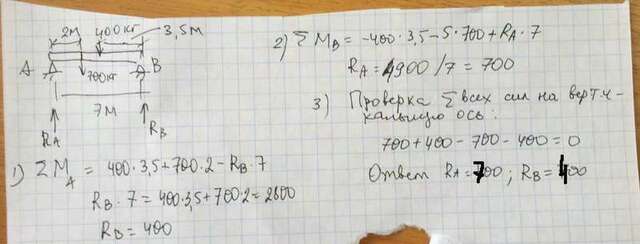 2м 400кг 3,5м
А В
700кг
7м
RA RB
1) ΣMA = 400·3,5+700·2−RB·7
RB·7=400·3,5+700·2=2800
RB=400
2) ΣMB=-400·3,5−5·700+RA·7
RA=4900/7=700
3) Проверка Σ всех сил на верти-
кальную ось:
700+400−700−400=0
Ответ RA=700; RB=400